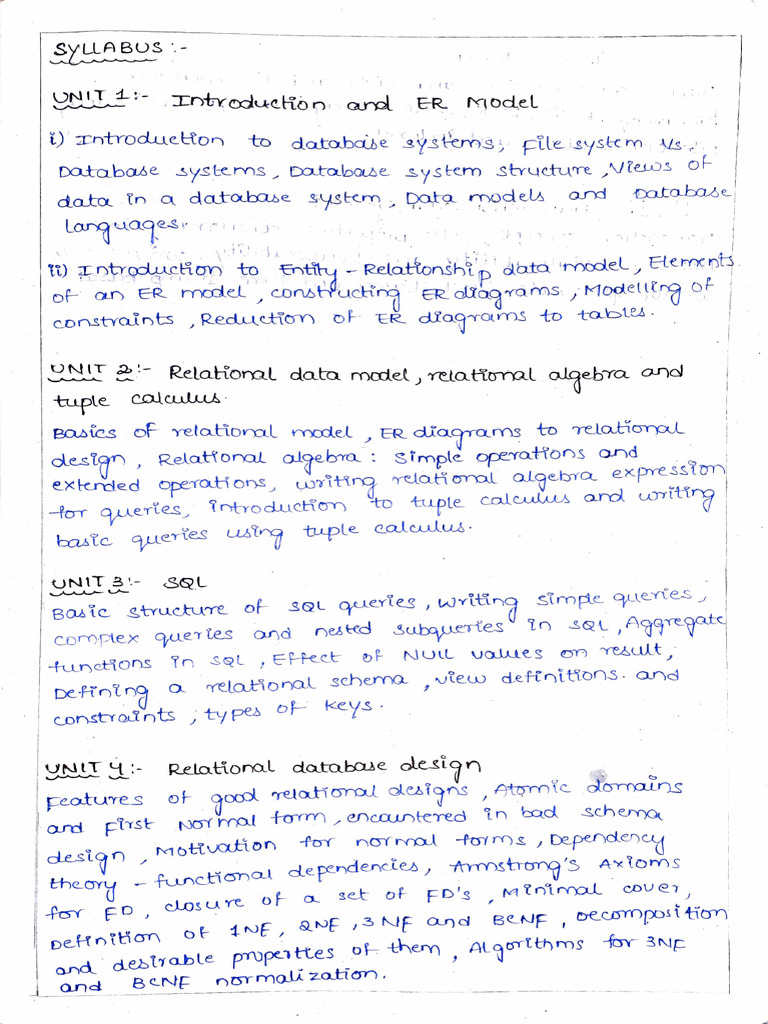 SYLLABUS :-
UNIT 1:- Introduction and ER Model
i) Introduction to database systems, File system Vs.
Database systems, Database system structure, Views of
data in a database system, Data models and Database
languages.
ii) Introduction to Entity - Relationship data model, Elements
of an ER model, constructing ER diagrams, Modelling of
constraints, Reduction of ER diagrams to tables.
UNIT 2:- Relational data model, relational algebra and
tuple calculus.
Basics of relational model, ER diagrams to relational
design, Relational algebra : Simple operations and
extended operations, writing relational algebra expression
for queries, introduction to tuple calculus and writing
basic queries using tuple calculus.
UNIT 3:- SQL
Basic structure of SQL queries, Writing simple queries,
complex queries and nested subqueries in SQL, Aggregate
functions in SQL, Effect of NULL values on result,
Defining a relational schema, view definitions. and
constraints, types of keys.
UNIT 4:- Relational database design
Features of good relational designs, Atomic domains
and First Normal form, encountered in bad schema
design, Motivation for normal forms, Dependency
theory - functional dependencies, Armstrong's Axioms
for FD, closure of a set of FD's, Minimal cover,
Definition of 1NF, 2NF, 3NF and BCNF, Decomposition
and desirable properties of them, Algorithms for 3NF
and BCNF normalization.